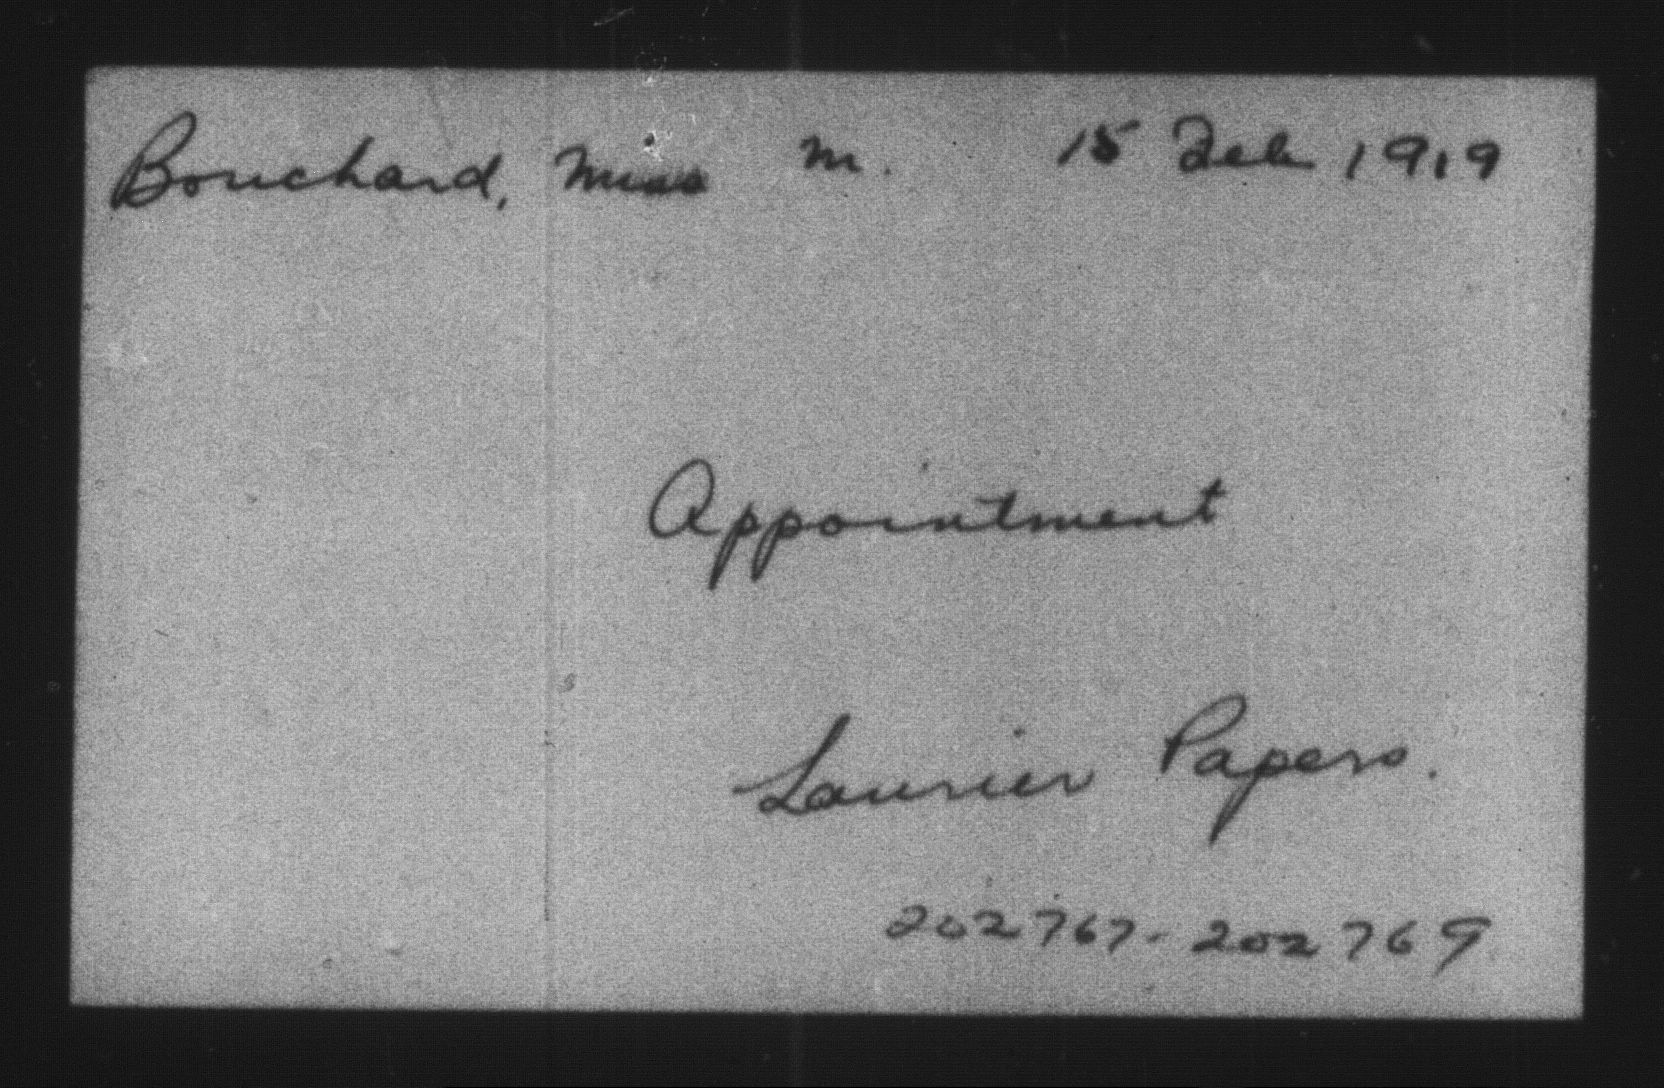 Bouchard, Miss M. 15 Feb 1919
Appointment
Laurier Papers.
202767-202769